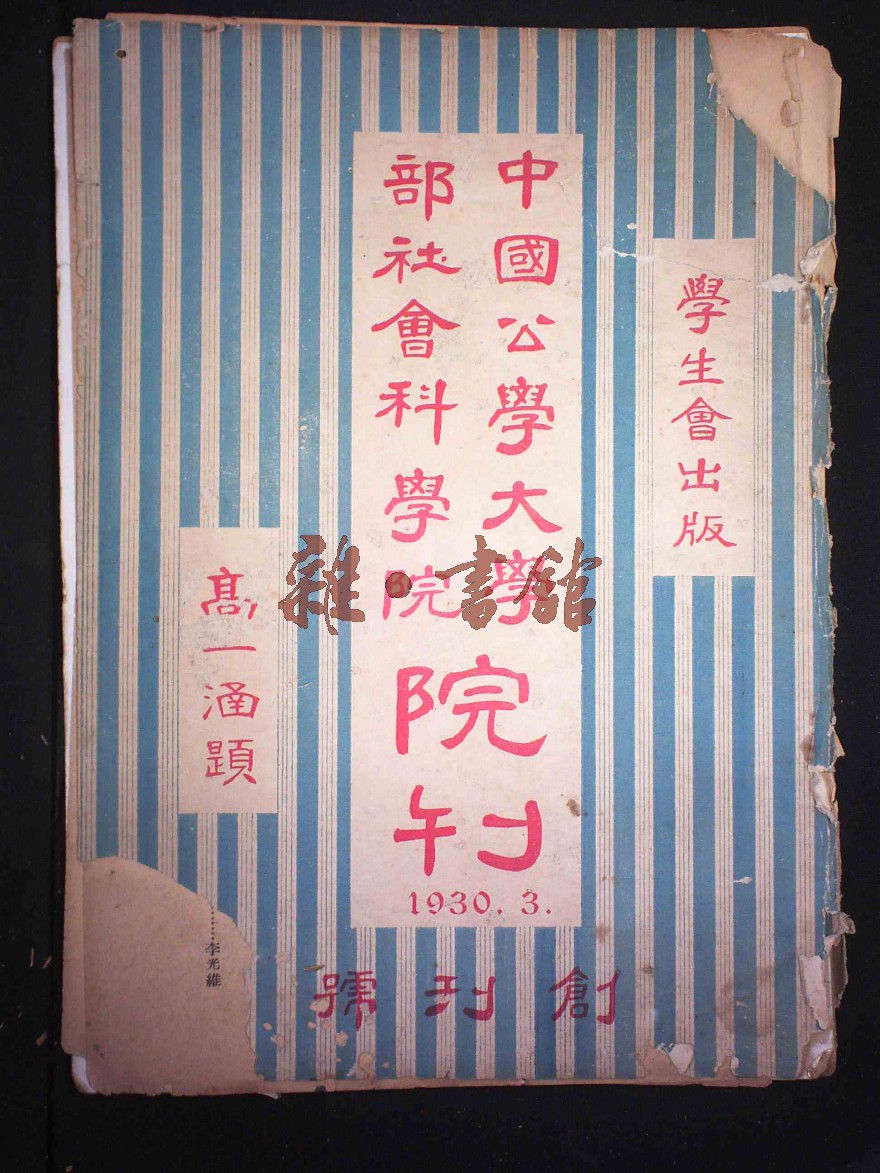 學生會出版
中國公學大學
部社會科學院
院刊
1930.3.
高一涵題
創刊號
李光維
雜·書館